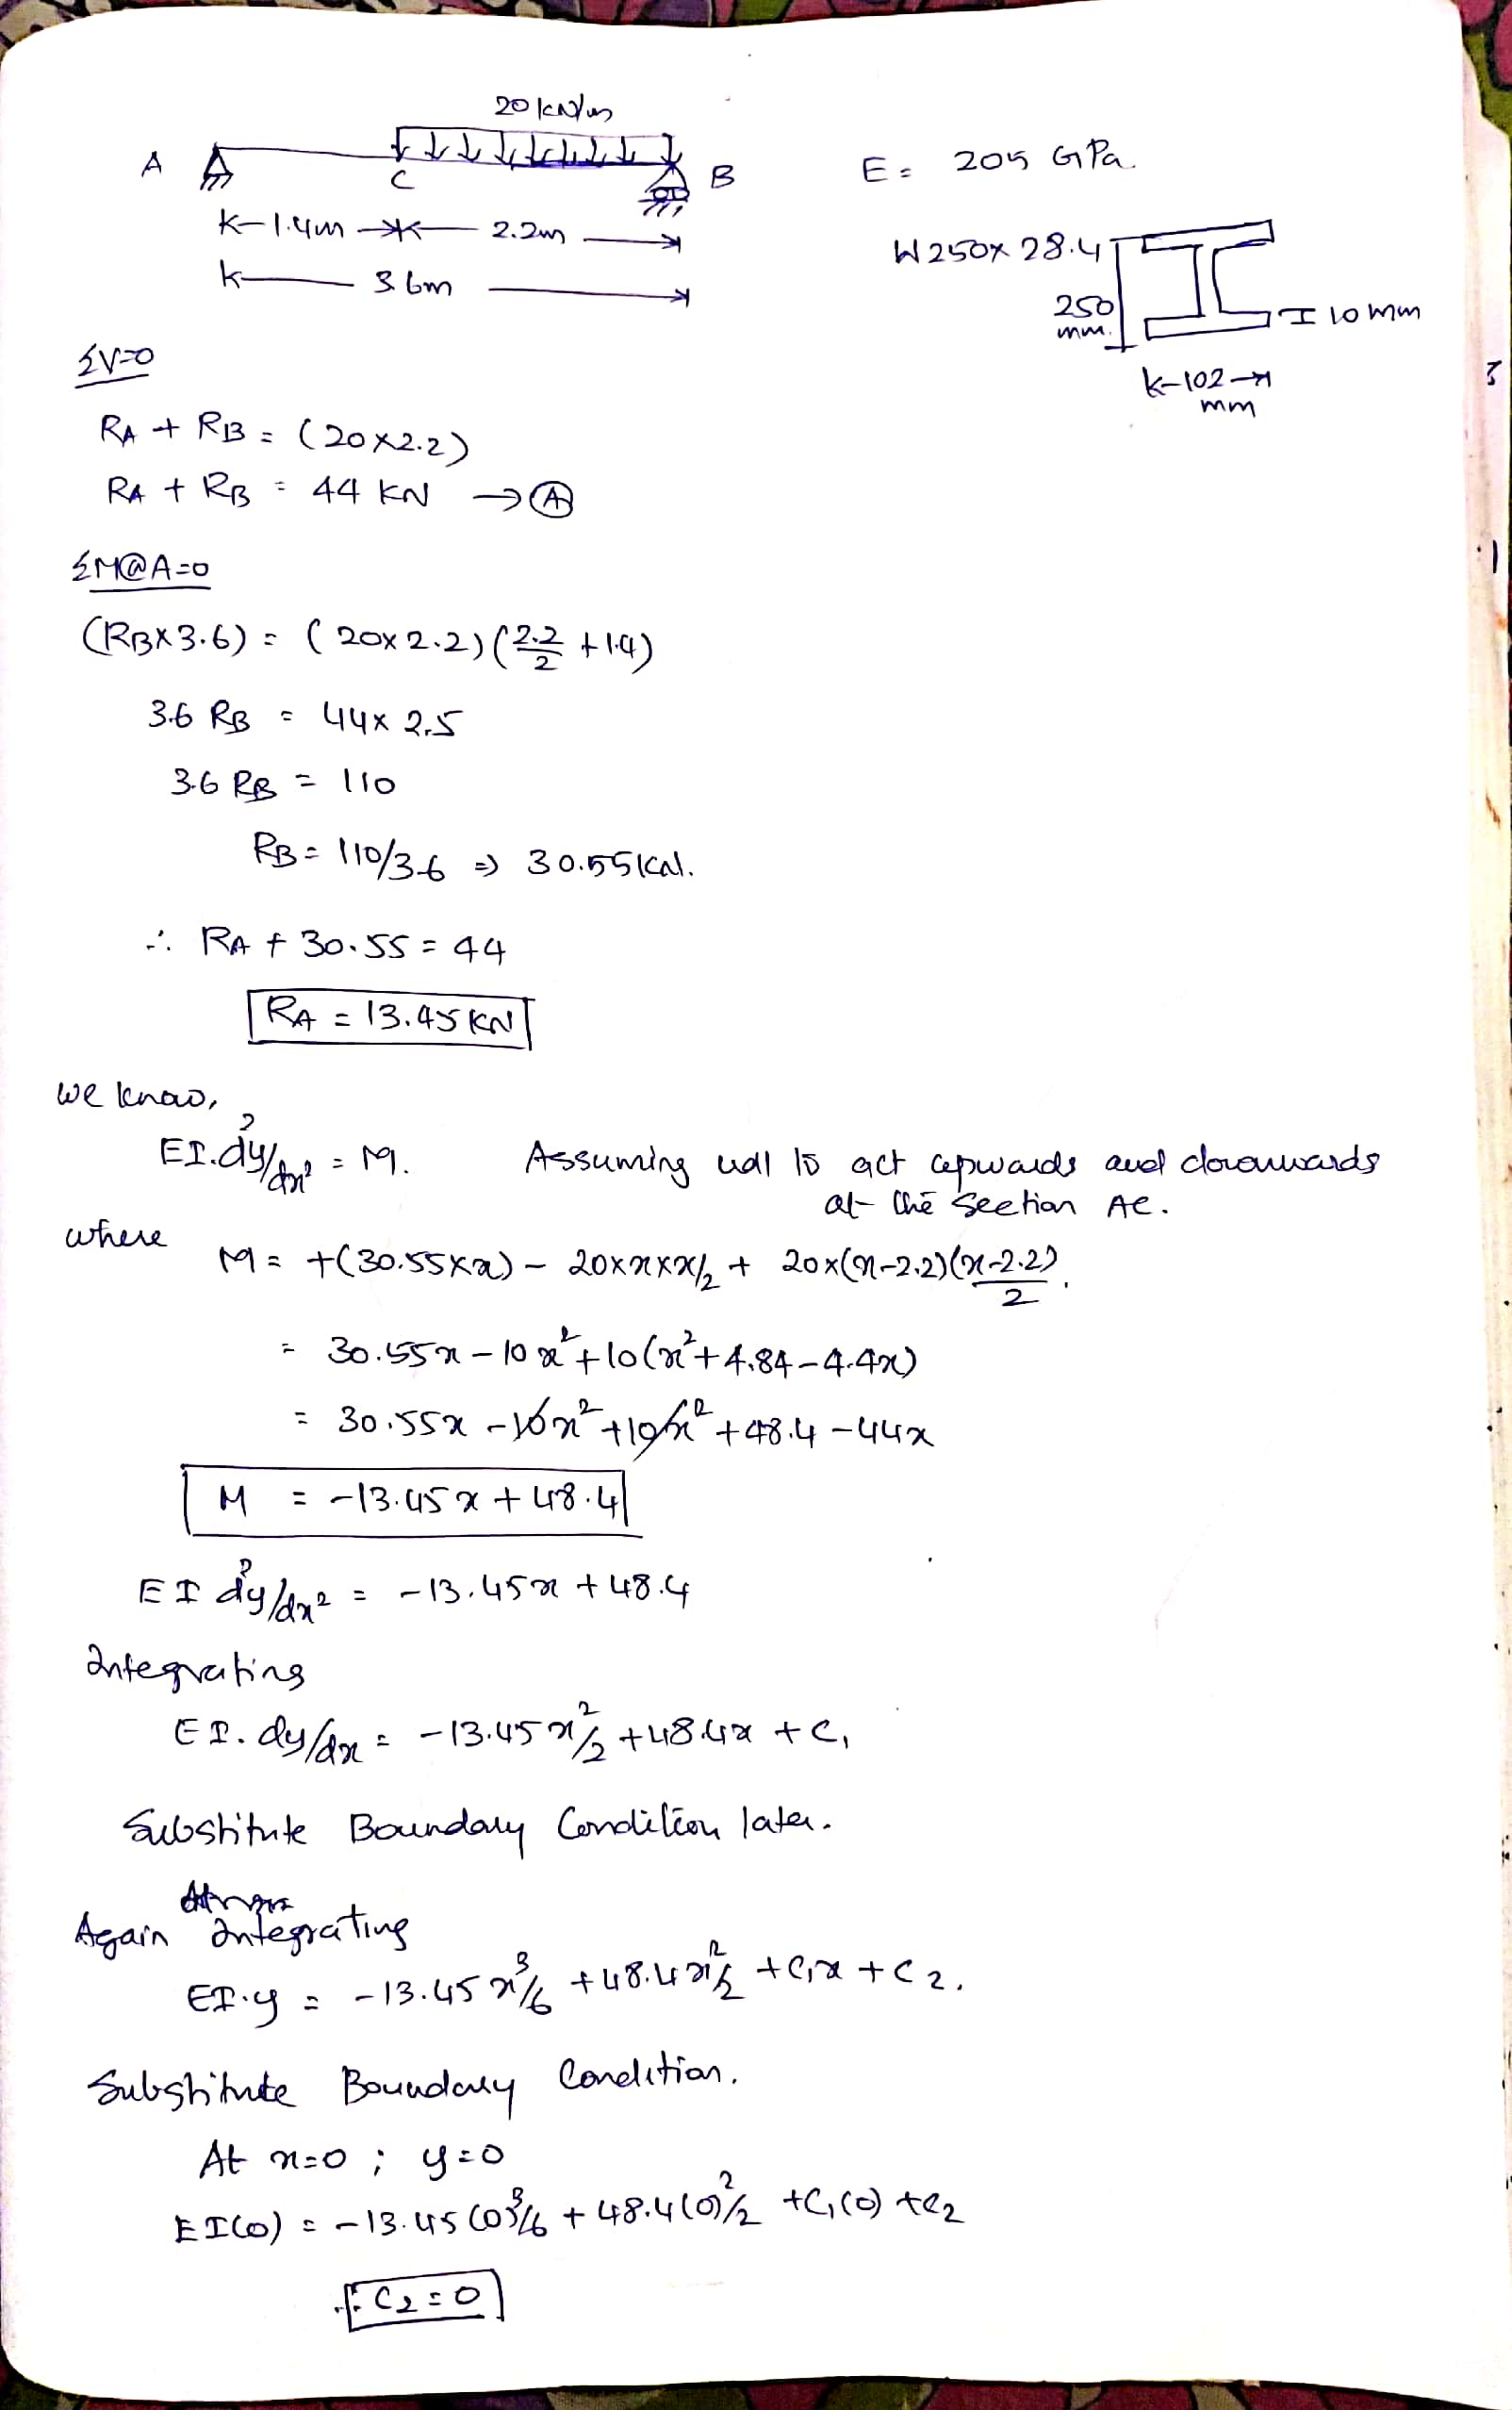 20 kN/m
A
C
B
E = 205 GPa
1.4m
2.2m
3.6m
W 250x 28.4
250
mm.
10 mm
102
mm
ΣV=0
RA + RB = (20x2.2)
RA + RB = 44 KN → (A)
ΣM@A=0
(RBx3.6) = (20x2.2)(2.2/2 + 1.4)
3.6 RB = 44x 2.5
3.6 RB = 110
RB = 110/3.6 ⇒ 30.55kN.
∴ RA + 30.55 = 44
RA = 13.45 KN
we know,
EI.d²y/dx² = M. Assuming udl to act upwards and downwards
at the section AC.
where
M = +(30.55xx) - 20xxxx/2 + 20x(x-2.2)(x-2.2)/2.
= 30.55x - 10x² + 10(x² + 4.84 - 4.4x)
= 30.55x - 10x² + 10x² + 48.4 - 44x
M = -13.45x + 48.4
EI d²y/dx² = -13.45x + 48.4
Integrating
EI. dy/dx = -13.45 x²/2 + 48.4x + C1
Substitute Boundary Condition later.
Again Integrating
EI.y = -13.45 x³/6 + 48.4 x²/2 + C1x + C2.
Substitute Boundary Condition.
At x=0 ; y=0
EI(0) = -13.45 (0)³/6 + 48.4(0)²/2 + C1(0) + C2
∴ C2 = 0